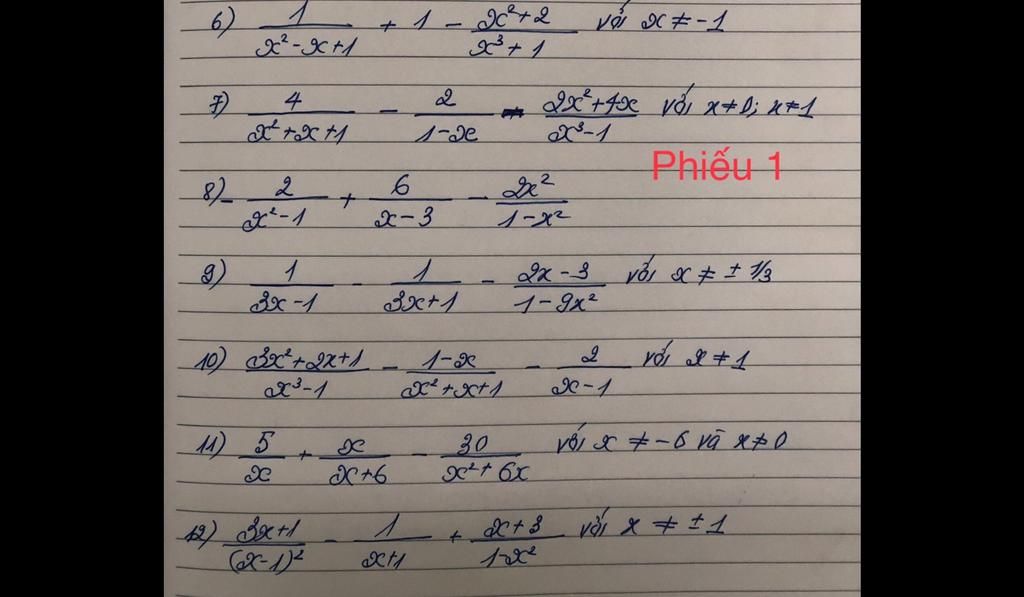 6) 1/(x²-x+1) + 1 - (x²+2)/(x³+1) với x ≠ -1
7) 4/(x²+x+1) - 2/(1-x) - (2x²+4x)/(x³-1) với x≠0; x≠1
Phiếu 1
8) - 2/(x²-1) + 6/(x-3) - 2x²/(1-x²)
9) 1/(3x-1) - 1/(3x+1) - (2x-3)/(1-9x²) với x ≠ ± 1/3
10) (3x²+2x+1)/(x³-1) - (1-x)/(x²+x+1) - 2/(x-1) với x ≠ 1
11) 5/x + x/(x+6) - 30/(x²+6x) với x ≠ -6 và x≠0
12) (3x+1)/(x-1)² - 1/(x+1) + (x+3)/(1-x²) với x ≠ ±1